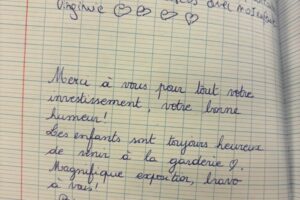 Virginie ♡ ♡ ♡ ♡
Merci à vous pour tout votre
investissement, votre bonne
humeur!
Les enfants sont toujours heureux
de venir à la garderie ♡.
Magnifique exposition, bravo
à vous!